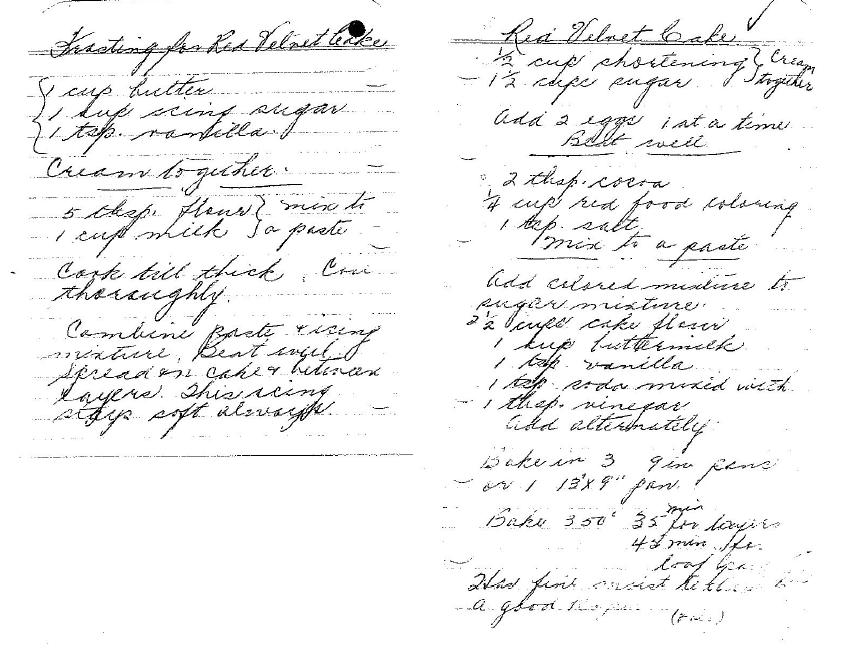 Frosting for Red Velvet Cake
1 cup butter
1 cup icing sugar
1 tsp. vanilla
Cream together.
5 tbsp. flour } mix to
1 cup milk } a paste
Cook till thick. Cool
thoroughly.
Combine paste & icing
mixture. Beat well
Spread on cake & between
layers. This icing
stays soft always
Red Velvet Cake
1/2 cup shortening } Cream
1 1/2 cups sugar } together
Add 2 eggs 1 at a time
Beat well
2 tbsp. cocoa
1/4 cup red food coloring
1 tsp. salt
Mix to a paste
Add colored mixture to
sugar mixture.
2 1/2 cups cake flour
1 cup buttermilk
1 tsp vanilla
1 tsp soda mixed with
1 tbsp. vinegar
Add alternately
Bake in 3 9 in pans
or 1 13"X9" pan.
Bake 350° 35 min for layers
45 min. for
loaf
Has fine moist
a good